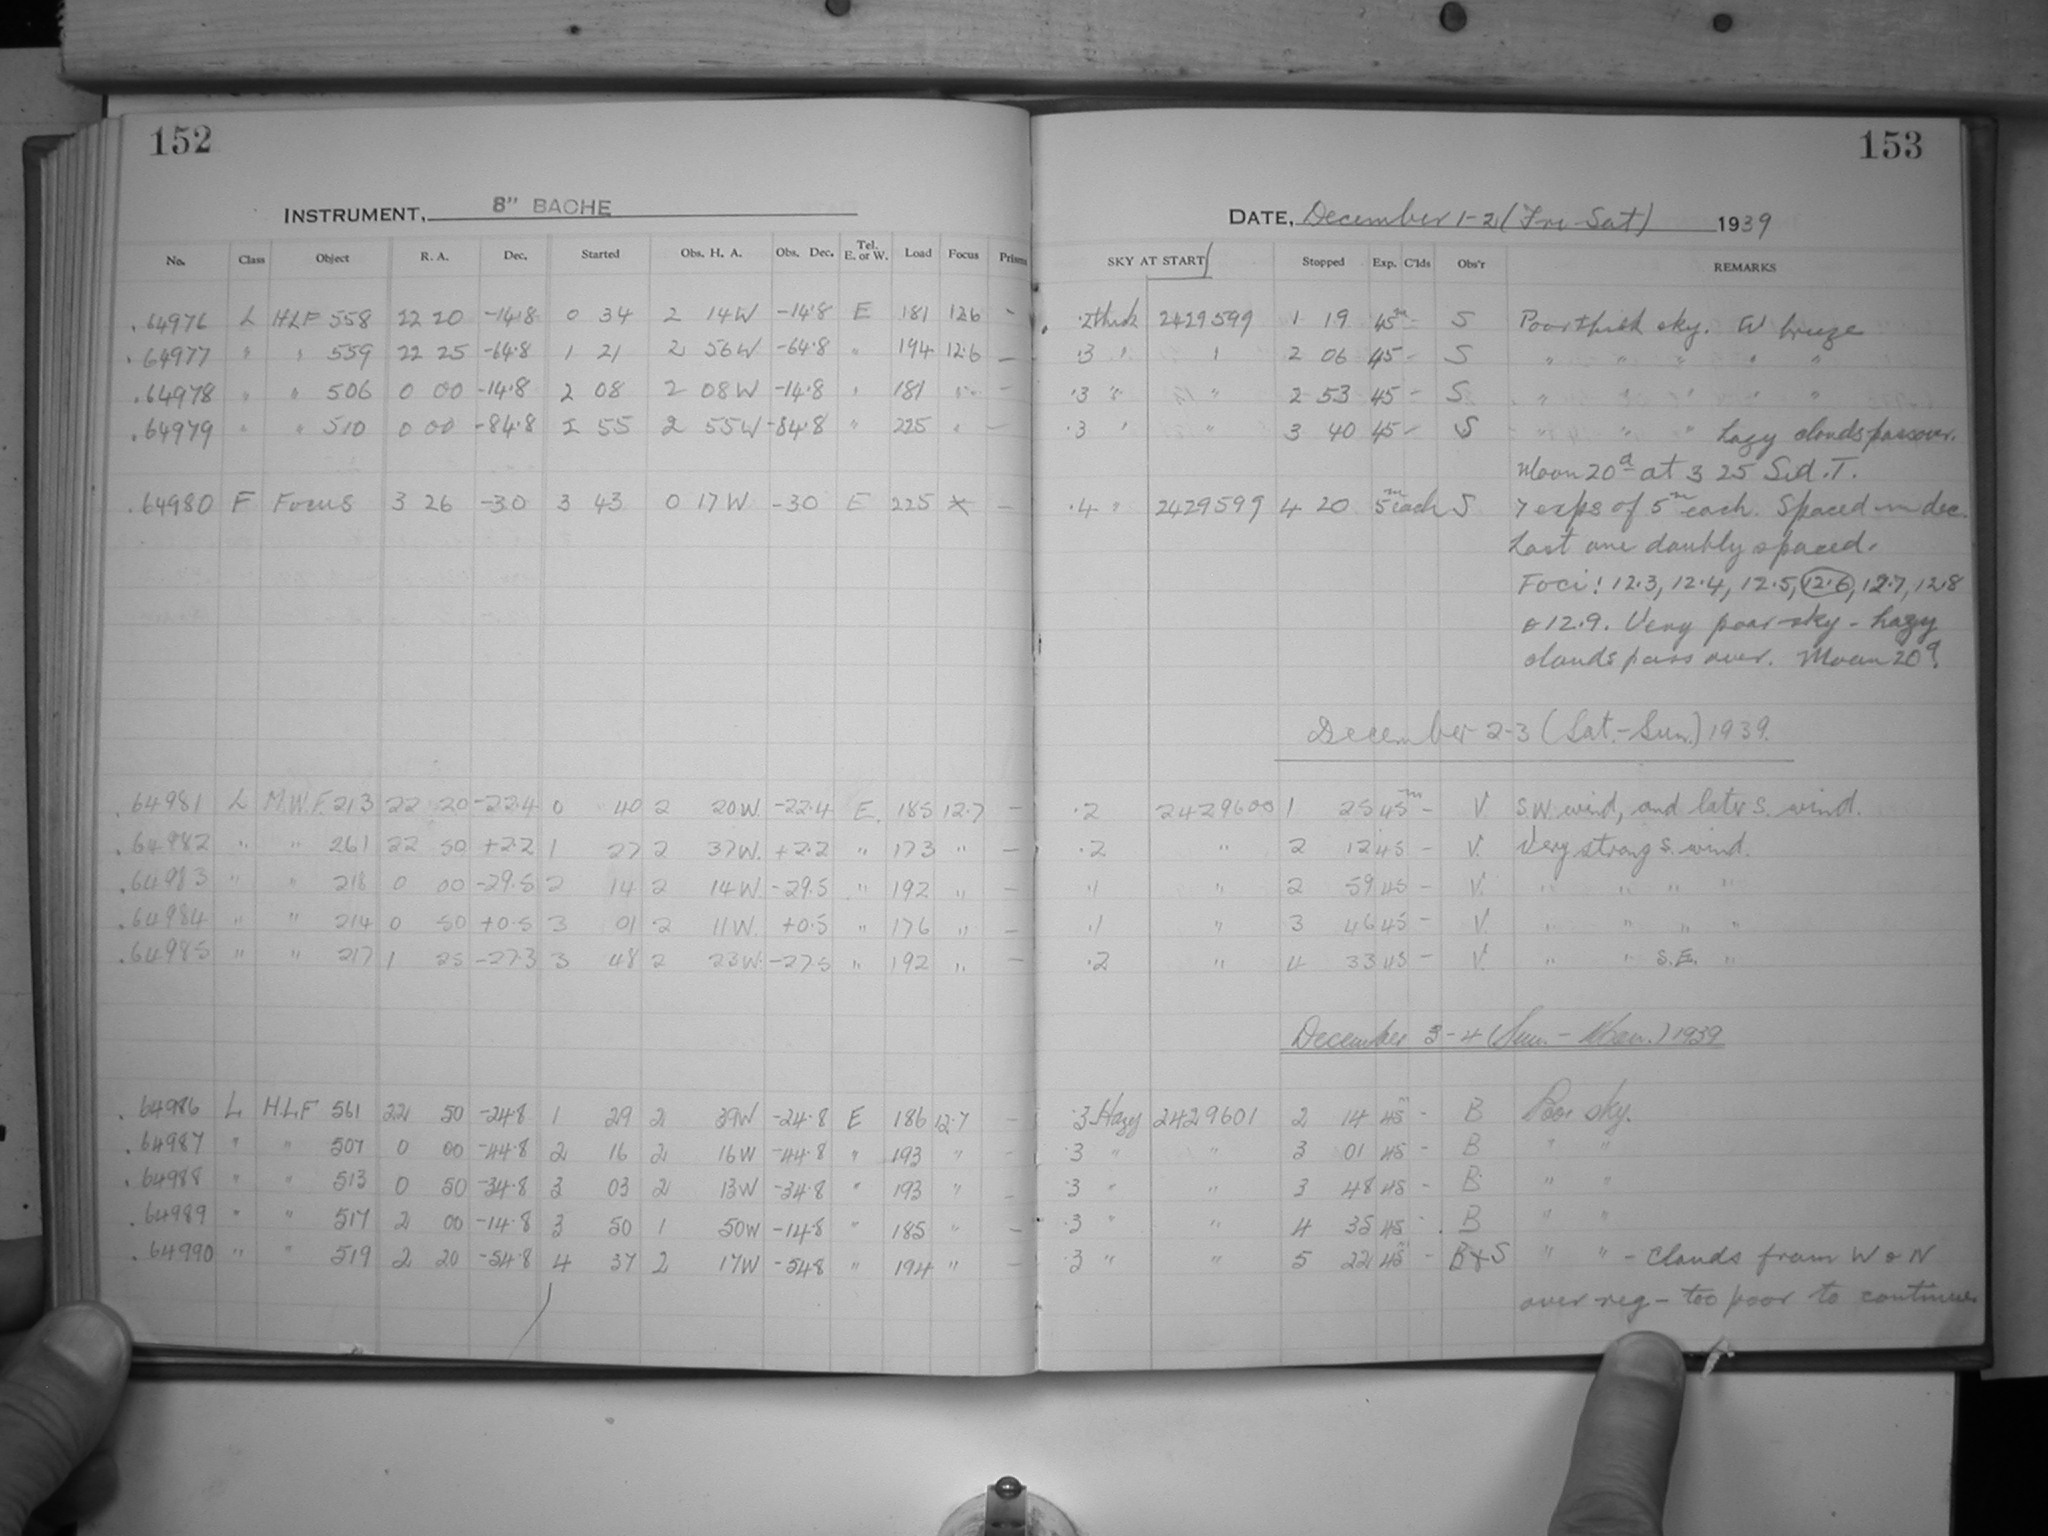 152
INSTRUMENT, 8" BACHE
No. Class Object R. A. Dec. Started Obs. H. A. Obs. Dec. Tel. E. or W. Load Focus Prism
.64976 L HLF 558 22 20 -14.8 0 34 2 14W -14.8 E 181 126 -
.64977 " " 559 22 25 -64.8 1 21 2 56W -64.8 " 194 12.6 -
.64978 " " 506 0 00 -14.8 2 08 2 08W -14.8 " 181 " -
.64979 " " 510 0 00 -84.8 2 55 2 55W -84.8 " 225 " -
.64980 F Focus 3 26 -30 3 43 0 17W -30 E 225 X -
.64981 L M.W.F. 213 22 20 -22.4 0 40 2 20W -22.4 E. 185 12.7 -
.64982 " " 261 22 50 +2.2 1 27 2 37W. +2.2 " 173 " -
.64983 " " 218 0 00 -29.5 2 14 2 14W -29.5 " 192 " -
.64984 " " 214 0 50 +0.5 3 01 2 11W. +0.5 " 176 " -
.64985 " " 217 1 25 -27.3 3 48 2 23W. -27.5 " 192 " -
.64986 L H.L.F 561 22 50 -24.8 1 29 2 39W -24.8 E 186 12.7 -
.64987 " " 507 0 00 -44.8 2 16 2 16W -44.8 " 193 " -
.64988 " " 513 0 50 -34.8 3 03 2 13W -34.8 " 193 " -
.64989 " " 517 2 00 -14.8 3 50 1 50W -14.8 " 185 " -
.64990 " " 519 2 20 -54.8 4 37 2 17W -54.8 " 194 " -
153
DATE, December 1-2 (Fri-Sat) 1939
SKY AT START Stopped Exp. C'lds Obs'r REMARKS
.2 thick 2429599 1 19 45m - S Poor thick sky. W breeze
.3 " " 2 06 45 - S " " " " "
.3 " " 2 53 45 - S " " " " "
.3 " " 3 40 45 - S " " " hazy clouds passover.
Moon 20d at 3 25 Sid. T.
.4 " 2429599 4 20 5m each S 7 exps of 5m each. Spaced in dec.
Last one doubly spaced.
Foci: 12.3, 12.4, 12.5, 12.6, 12.7, 12.8
& 12.9. Very poor sky - hazy
clouds pass over. Moon 20d.
December 2-3 (Sat.-Sun.) 1939.
.2 2429600 1 25 45m - V S.W. wind, and later S. wind.
.2 " 2 12 45 - V. Very strong S. wind.
.1 " 2 59 45 - V. " " " "
.1 " 3 46 45 - V. " " " "
.2 " 4 33 45 - V. " " S.E. "
December 3-4 (Sun. - Mon.) 1939
.3 Hazy 2429601 2 14 45m - B Poor sky.
.3 " " 3 01 45 - B " "
.3 " " 3 48 45 - B " "
.3 " " 4 35 45 - B " "
.3 " " 5 22 45m - B & S " " - Clouds from W & N
over reg - too poor to continue